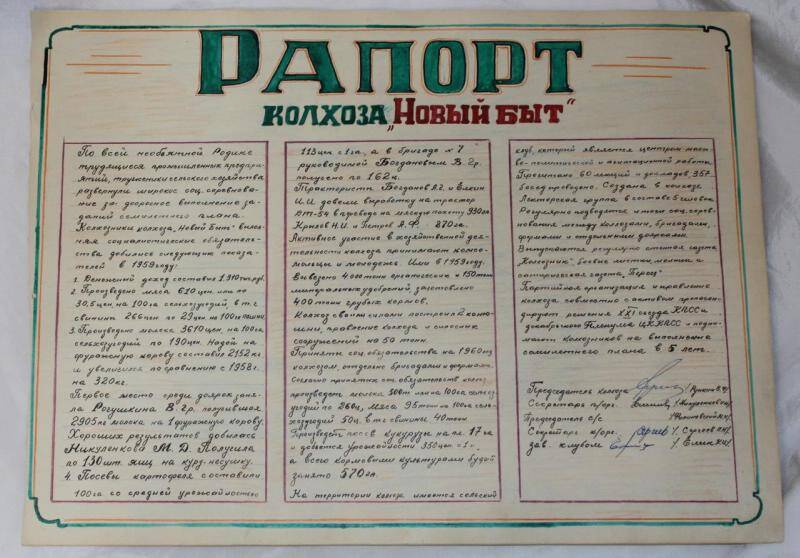 РАПОРТ
КОЛХОЗА „НОВЫЙ БЫТ"
По всей необъятной Родине
трудящиеся промышленных предпри-
ятий, труженики сельского хозяйства
развернули широкое соц. соревнование
за досрочное выполнение за-
даний семилетнего плана.
Колхозники колхоза „Новый Быт" выпол-
няя социалистические обязатель-
ства добились следующих показа-
телей в 1959 году:
1. Денежный доход составил
2. Произведено мяса 610 цен. или по
30,5 цен на 100 га сельхозугодий, в т.ч
свинины 266 цен по 29 цен на 100 га пашни
3. Произведено молока 3610 цен. на 100 га
сельхозугодий по 190 цен. Надой на
фуражную корову составил 2152 кг
и увеличился по сравнению с 1958 г.
на 320 кг.
Первое место среди доярок заня-
ла Рогушкина В. Гр. получившая
2905 кг молока на 1 фуражную корову.
Хороших результатов добилась
Никуленкова М. Д. Получила
по 130 шт. яиц на кур-несушку.
4. Посевы картофеля составили
100 га со средней урожайностью
113 цен с 1 га, а в бригаде № 7
руководимой Богдановым В. Гр.
получено по 162 ц.
Трактористы Богданов А.Г. и Елкин
И.И. довели выработку на трактор
ДТ-54 в переводе на мягкую пахоту 990 га.
Крылов Н.И. и Петров А.Ф. 870 га.
Активное участие в хозяйственной дея-
тельности колхоза принимают комсо-
мольцы и молодежь. Ими в 1959 году.
Вывезено 4.00 тонн органических и 150 тонн
минеральных удобрений, заготовлено
400 тонн грубых кормов.
Колхоз своими силами построил 2
правление колхоза и силосных
сооружений на 50 тонн.
Приняты соц. обязательства на 1960 год
колхозом, отдельно бригадами и фермами.
Согласно принятых соц. обязательств колхоз
произведет молока 500 тн или на 100 га сельхо-
зугодий по 260 ц, мяса 95 тонн на 100 га сель-
хозугодий 50 ц. в т.ч свинины 40 тонн.
Произведет посев кукурузы на пл. 17 га
и добьется урожайности 350 цен с 1 га,
а всего кормовыми культурами будет
занято 570 га.
На территории колхоза имеется сельский
клуб, который является центром массо-
во-политической и агитационной работы.
Прочитано 60 лекций и докладов, 357
бесед проведено. Создана в колхозе
лекторская группа в составе 5 человек.
Регулярно подводятся итоги соц. сорев-
нования между колхозами, бригадами,
фермами и отдельными доярками.
Выпускаются регулярно стенная газета
„Колхозник", боевые листки, молнии и
сатирическая газета „Перец"
Партийная организация и правление
колхоза совместно с активом пропаган-
дирует решения XXI съезда КПСС и
декабрьского Пленума ЦК КПСС и подни-
мают колхозников на выполнение
семилетнего плана в 5 лет.
Председатель колхоза
Секретарь п/орг.
Председатель с/с
Секретарь к/орг. /Сергеев
зав. клубом /Елкин